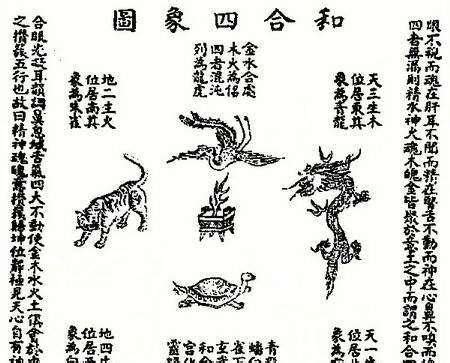 和合四象圖
眼不視而魂在肝耳不聞而精在腎舌不動而神在心鼻不嗅而
四者無漏則精水神火魂木魄金皆聚於意土之中而謂之和合
天三生木
位居東其
象為青龍
金水合處
木火為侶
四者混沌
列為龍虎
地二生火
位居南其
象為朱雀
天一
位居北
象為
青龍
蟠
雀下
玄武
和合
宮化
靈
地四生
位居西
象為白
合眼光凝耳韻調鼻息緘舌氣四大不動使金木水火土俱會於
之攢簇五行也故曰精神魂魄意攢簇歸坤位靜極見天心自有神